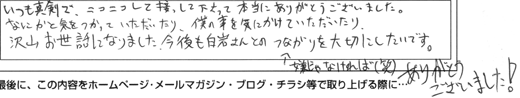 いつも真剣で、ニコニコして接して下さって本当にありがとうございました。
なにかと気をつかっていただいたり、僕の事を気にかけていただいたり、
沢山お世話になりました。今後も白岩さんとのつながりを大切にしたいです。
↑嫌じゃなければ(笑)
ありがとう
ございました!
最後に、この内容をホームページ・メールマガジン・ブログ・チラシ等で取り上げる際に…